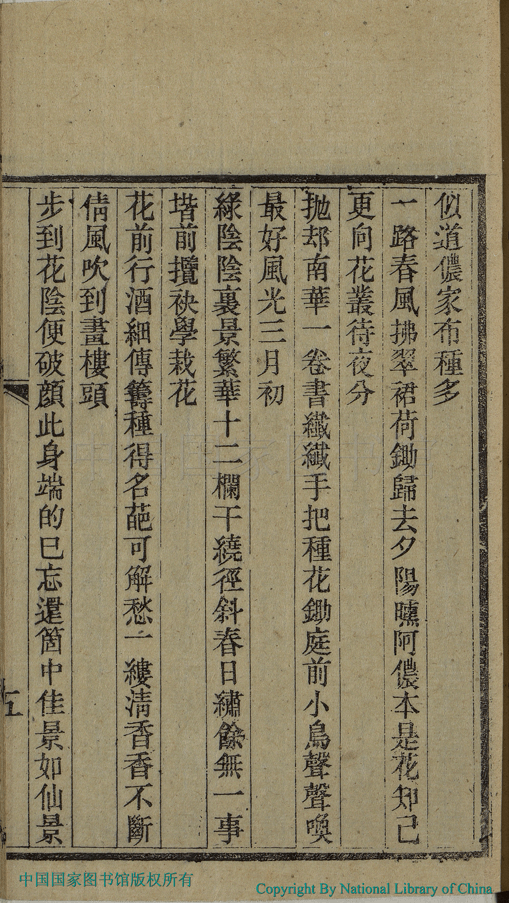 似道儂家布種多
一路春風拂翠裙荷鋤歸去夕陽曛阿儂本是花知己
更向花叢待夜分
抛却南華一卷書纖纖手把種花鋤庭前小鳥聲聲喚
最好風光三月初
綠陰陰裏景繁華十二欄干繞徑斜春日繡餘無一事
堦前攬袂學栽花
花前行酒細傳籌種得名葩可解愁一縷清香香不斷
倩風吹到畫樓頭
步到花陰便破顏此身端的已忘還箇中佳景如仙景
五
中国国家图书馆版权所有
Copyright By National Library of China